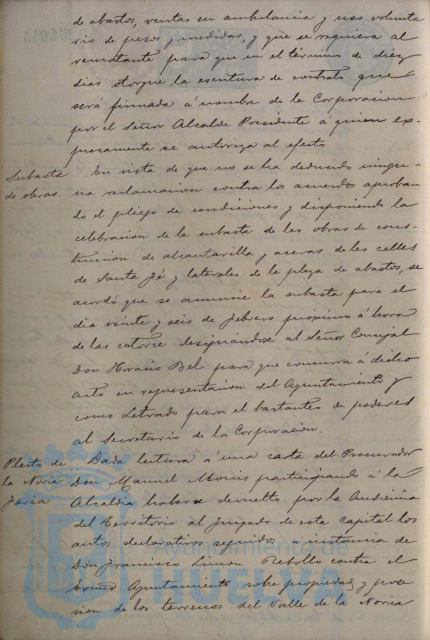 de abastos, ventas en ambulancia y uso volunta
rio de pesos y medidas, y que se requiera al
rematante para que en el término de diez
dias otorgue la escritura de contrato que
será firmada á nombre de la Corporacion
por el Señor Alcalde Presidente á quien ex-
presamente se autoriza al efecto
Subasta de obras.
En vista de que no se ha deducido ningu-
na reclamacion contra los acuerdos aproban
do el pliego de condiciones y disponiendo la
celebracion de la subasta de las obras de cons-
truccion de alcantarilla y aceras de las calles
de Santa Fé y laterales de la plaza de abastos, se
acordó que se anuncie la subasta para el
dia veinte y seis de febrero proximo á hora
de las catorce designandose al Señor Concejal
Don Horacio Bel para que concurra á dicho
acto en representacion del Ayuntamiento y
como Letrado para el bastanteo de poderes
al Secretario de la Corporacion.
Pleito de la Noria
Dada lectura á una carta del Procurador
Don Manuel participando á la
Alcaldia haberse devuelto por la Audiencia
del Territorio al Juzgado de esta Capital los
autos declarativos seguidos á instancia de
Don Francisco Limon Rebollo contra el
Excmo Ayuntamiento sobre propiedad y pose
sion de los terrenos del Valle de la Noria
Ayuntamiento de
HUELVA